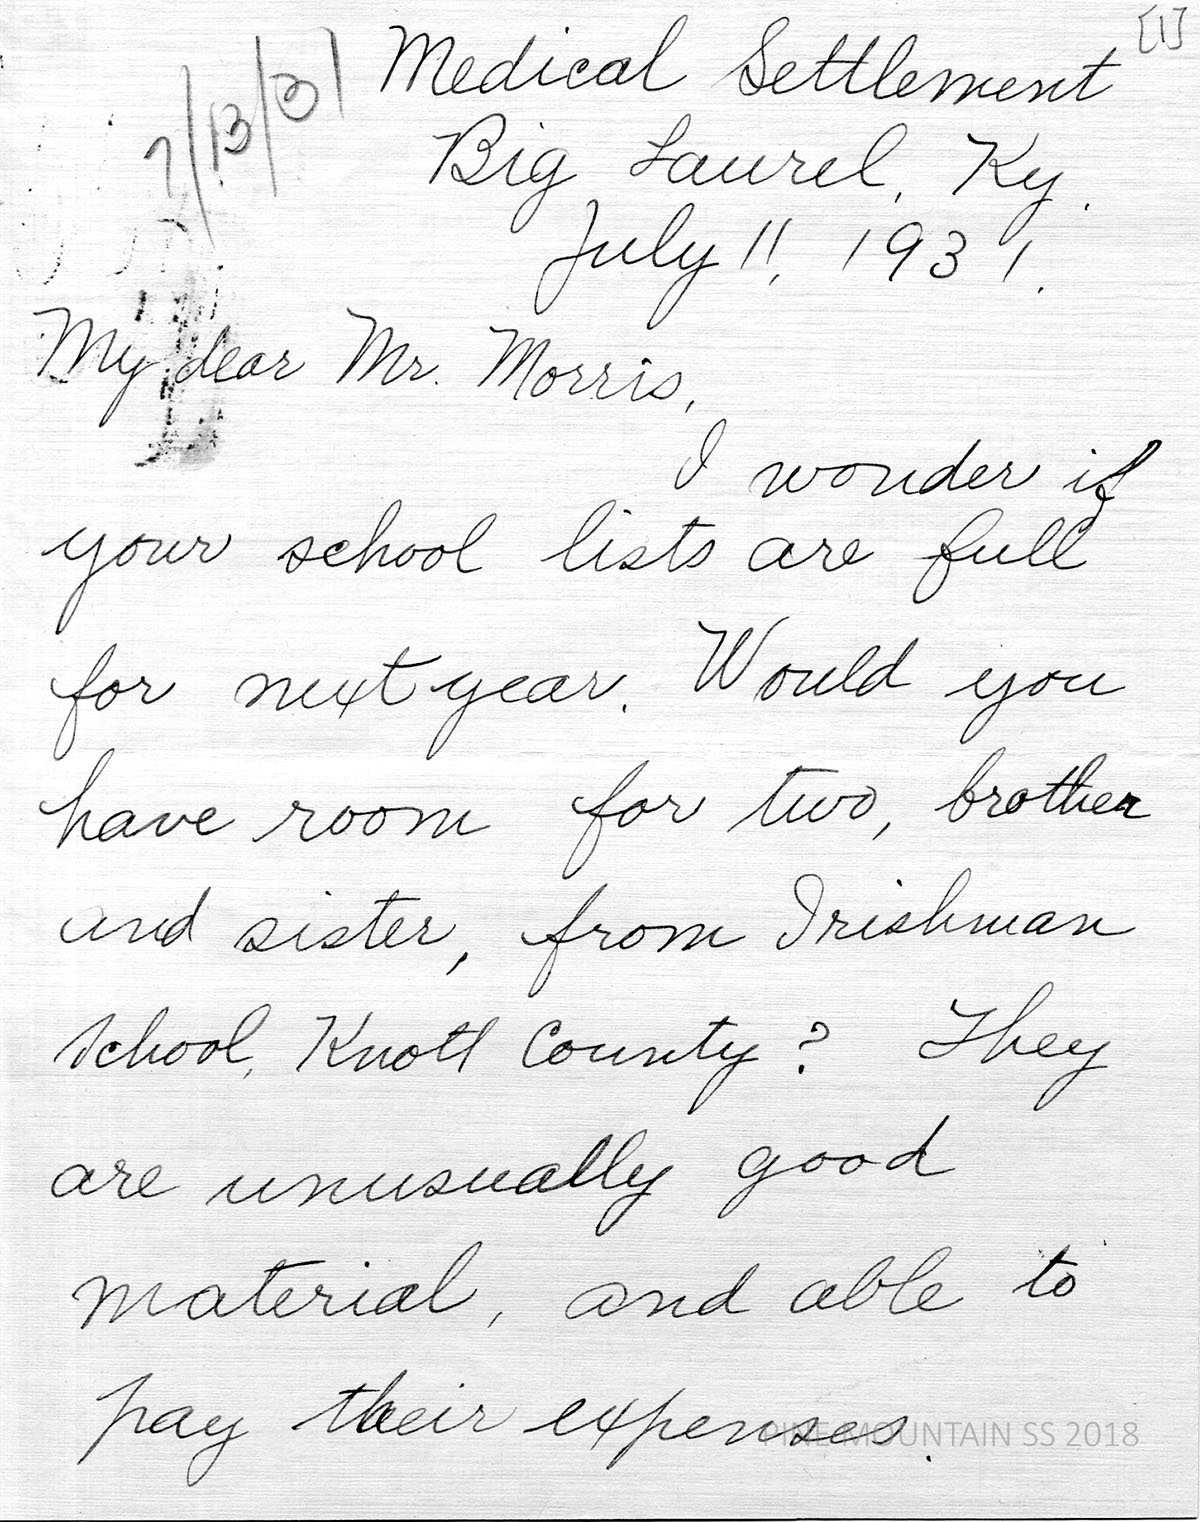 [1]
7/13/31
Medical Settlement
Big Laurel, Ky.
July 11, 1931.
My dear Mr. Morris,
I wonder if
your school lists are full
for next year. Would you
have room for two, brother
and sister, from Irishman
School, Knott County? They
are unusually good
material, and able to
pay their expenses.
PINE MOUNTAIN SS 2018